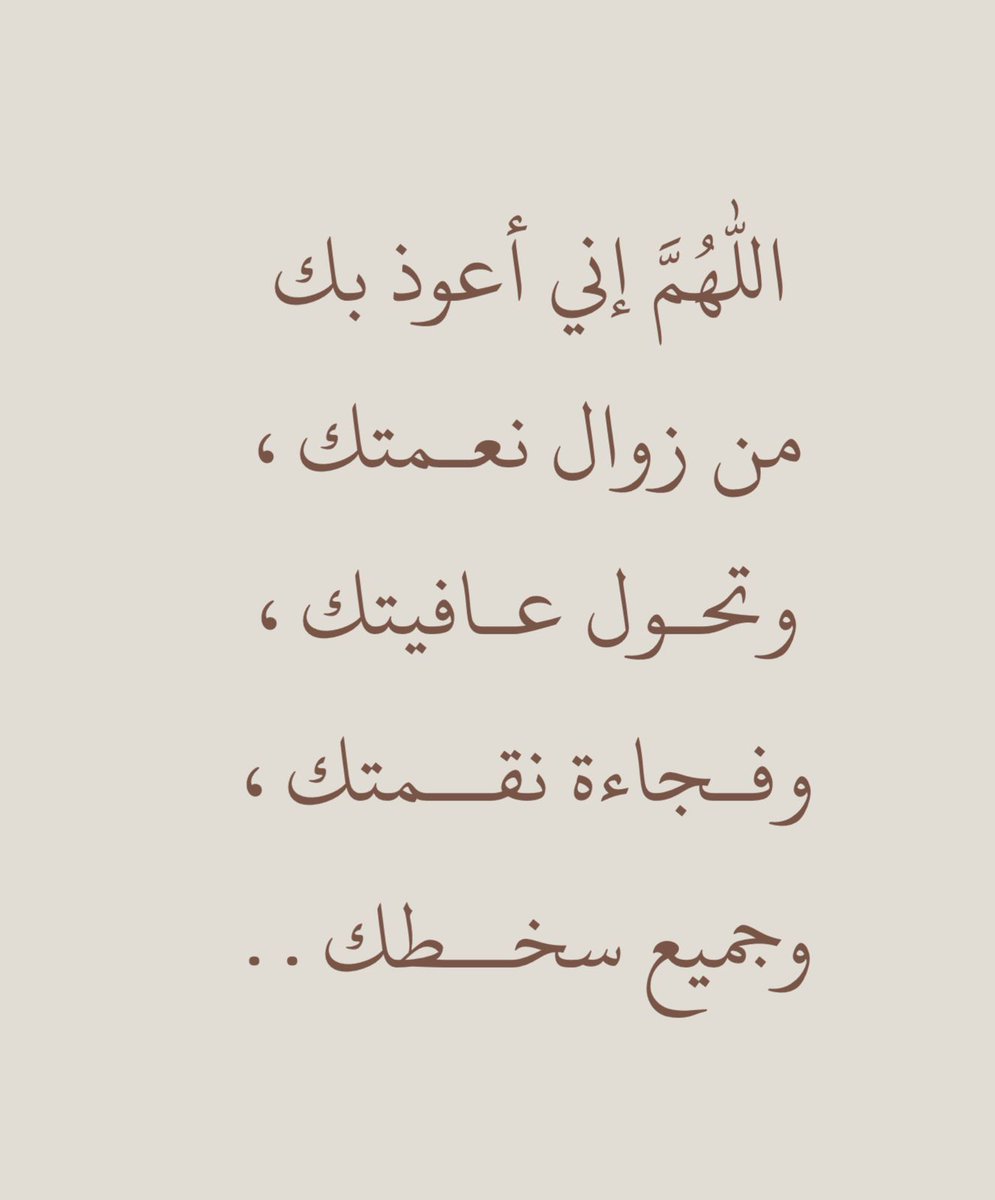 اللّٰهُمَّ إني أعوذ بك
من زوال نعـــمتك ،
وتحـــول عـــافيتك ،
وفـــجاءة نقـــــمتك ،
وجميع سخـــــطك . .